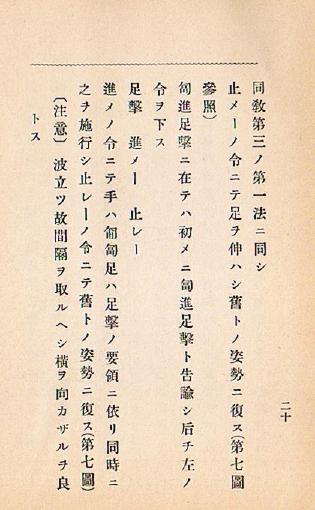 二十
同教第三ノ第一法ニ同シ
止メーノ令ニテ足ヲ伸ハシ舊トノ姿勢ニ復ス(第七圖
參照)
匐進足擊ニ在テハ初メニ匐進足擊ト告諭シ后チ左ノ
令ヲ下ス
足擊 進メー 止レー
進メノ令ニテ手ハ匍匐足ハ足擊ノ要領ニ依リ同時ニ
之ヲ施行シ止レーノ令ニテ舊トノ姿勢ニ復ス(第七圖)
〔注意〕波立ツ故間隔ヲ取ルヘシ橫ヲ向カザルヲ良
トス